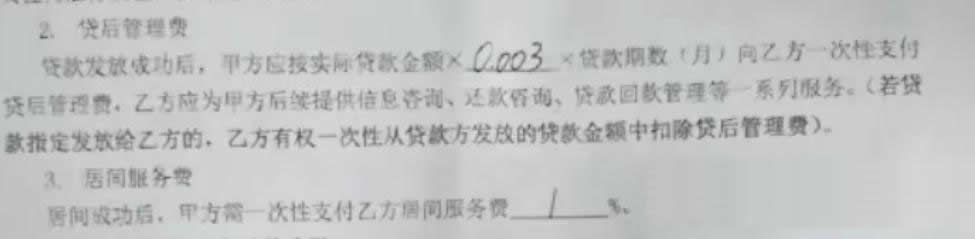 2. 贷后管理费
贷款发放成功后，甲方应按实际贷款金额×0.003×贷款期数（月）向乙方一次性支付
贷后管理费，乙方应为甲方后续提供信息咨询、还款咨询、贷款回款管理等一系列服务。（若贷
款指定发放给乙方的，乙方有权一次性从贷款方发放的贷款金额中扣除贷后管理费）。
3. 居间服务费
居间成功后，甲方需一次性支付乙方居间服务费1%。